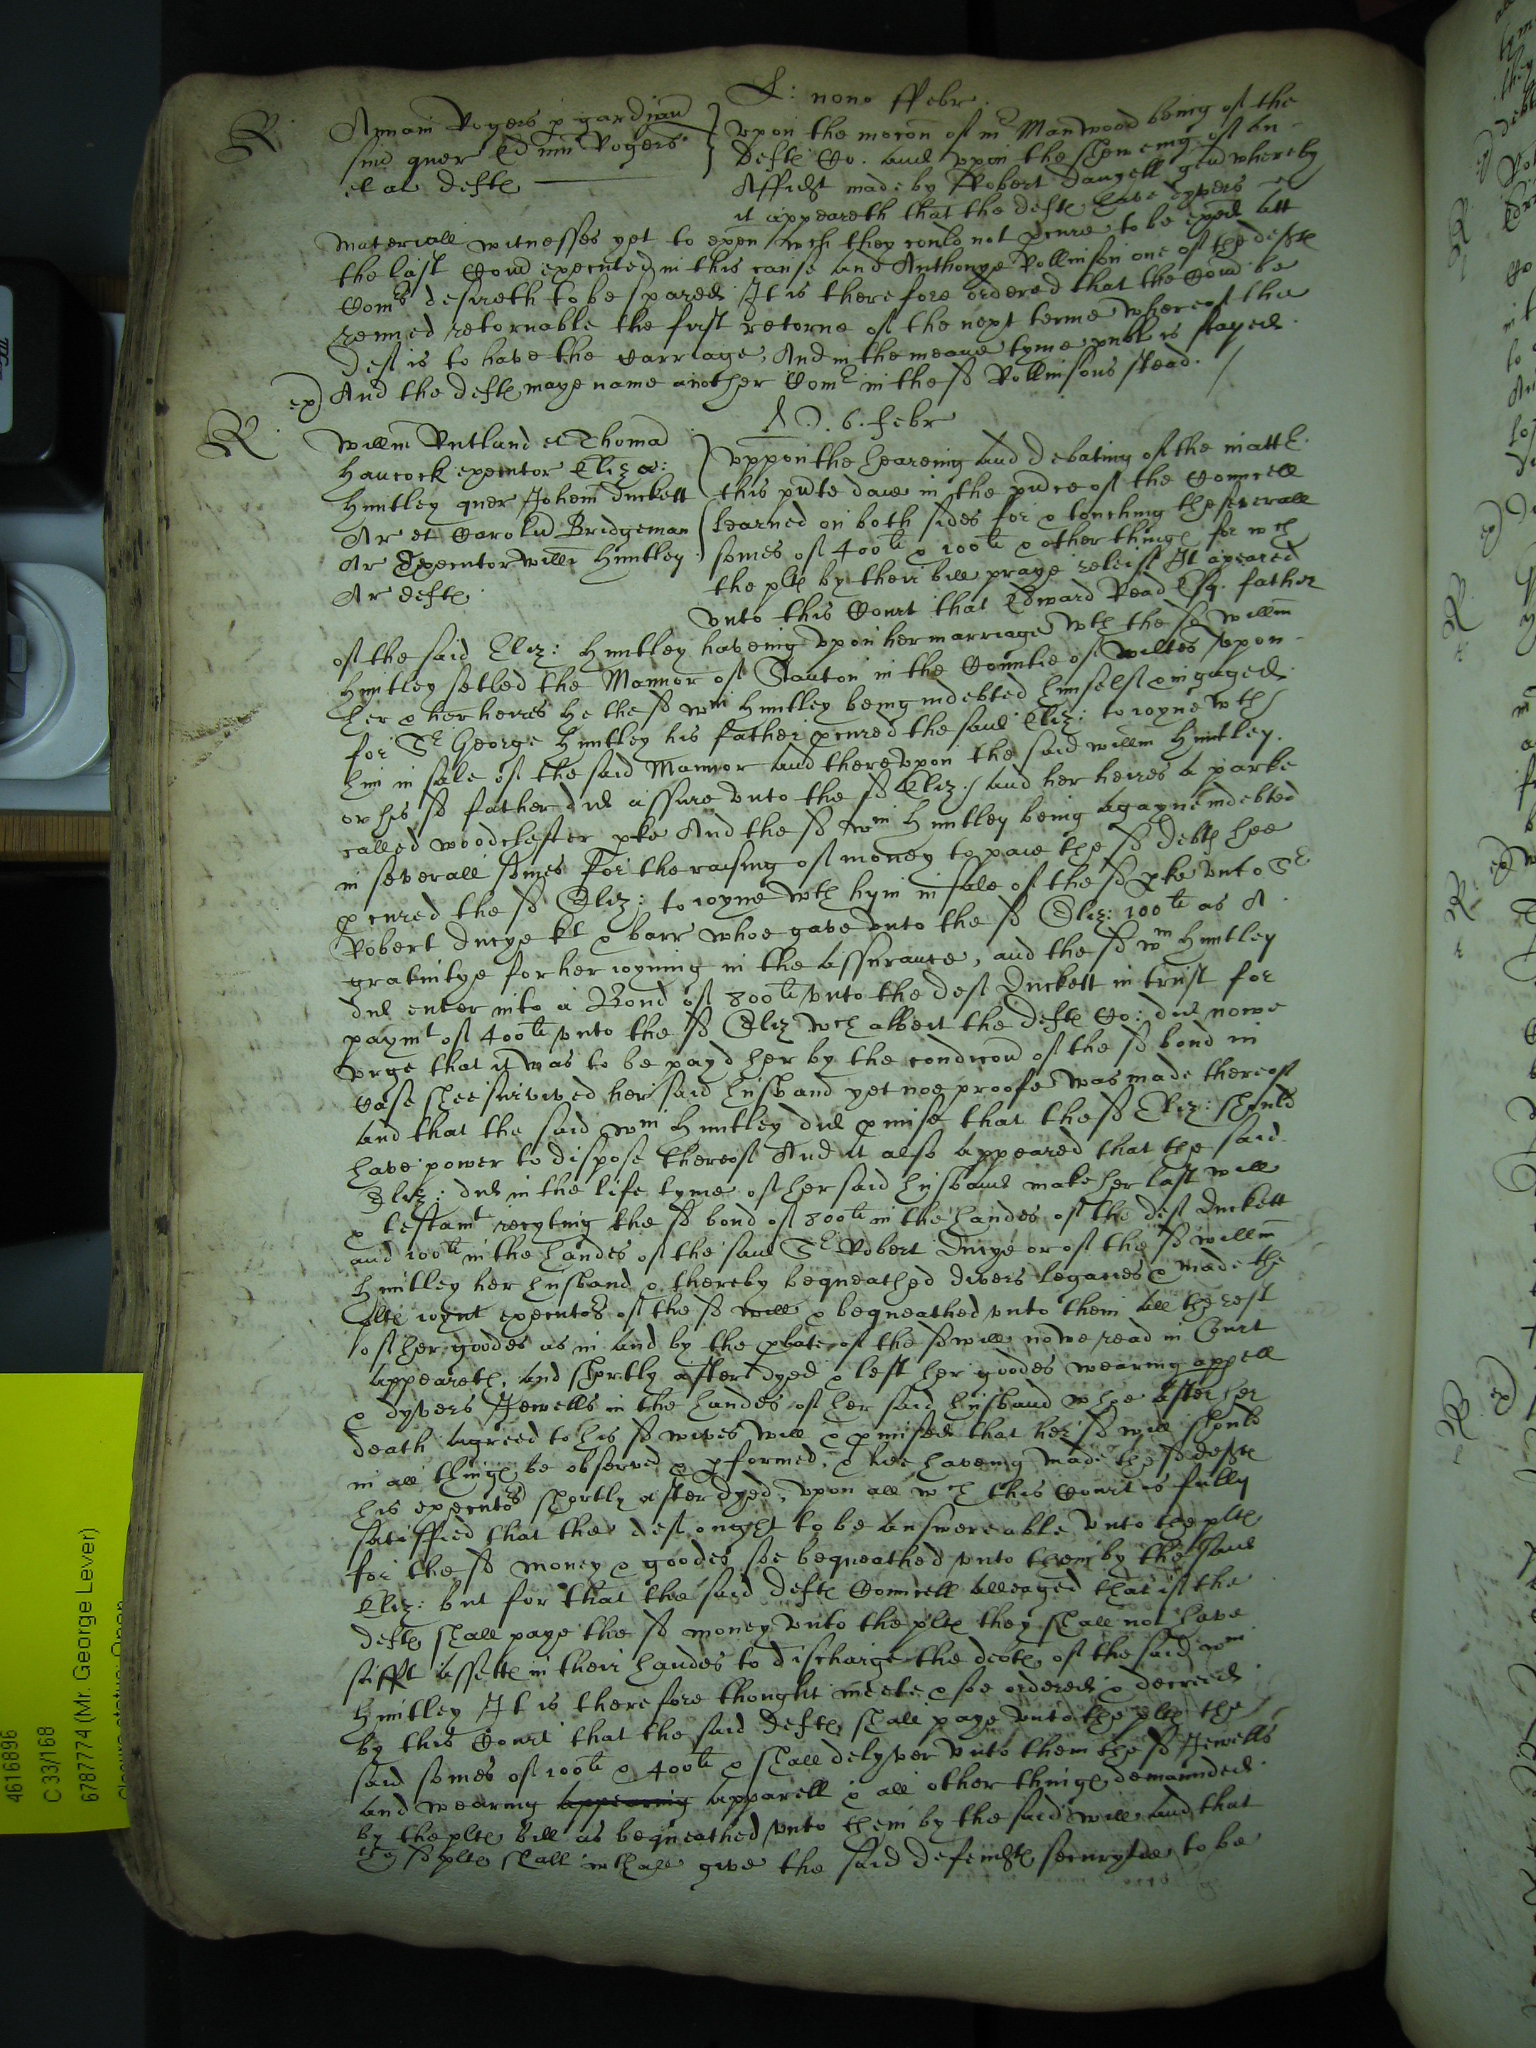 L: nono ffebr.
R
Annam Rogers p gardian
suu quer Edmu Rogers
et al defte
Upon the mocon of mr Manwood being of the
defte Co. and upon the shewing of an
Affidt made by Robert Dangell gen whereby
it appeareth that the defte have dyvers
materiall witnesses yet to exen wch they could not pcure to be exed att
the last Com executed in this cause and Anthonye Rollinson one of the defte
Coms desireth to be spared It is therefore ordered that the Com be
renued retornable the first retorne of the next terme whereof the
deft is to have the carriage, And in the meane tyme publ is stayed
ex And the defte maye name another Comr in the sd Rollinsons stead.
R
Willm Rutland et Thoma
Haucock executor Eliza:
Huntley quer Johem Duckett
Ar et Carolu Bridgeman
Ar Executor willi Huntley
Ar defte
6. febr
Uppon the hearing and debating of the matter
this pnte daie in the pnce of the Councell
learned on both sides for & touching the severall
somes of 400li & 100li & other thinge for wch
the plte by their bill praye releif It apeared
unto this Court that Edward Read Esq. father
of the said Eliz: Huntley haveing upon her marriage wth the sd willm
Huntley setled the Mannor of Stanton in the Countie of wiltes upon
her & her heires he the sd wm Huntley being indebted himself & ingaged
for Sr George Huntley his father pcured the said Eliz: to ioyne wth
him in sale of the said Mannor and thereupon the said willm Huntley
or his sd father did assure unto the sd Eliz: and her heires a parke
called woodchester pke And the sd wm Huntley being agayne indebted
in severall somes For the raising of money to paie the sd debte hee
pcured the sd Eliz: to ioyne wth hym in sale of the sd pke unto Sr
Robert Ducye kt & barr whoe gave unto the sd Eliz: 100li as A
gratuitye for her ioyning in the assurance, and the sd wm Huntley
did enter into a Bond of 800li unto the deft Duckett in trust for
paymt of 400li unto the sd Eliz wch albeit the defte Co: did nowe
urge that it was to be payd her by the condicon of the sd bond in
case shee survived her said husband yet noe proofe was made thereof
and that the said wm Huntley did pmise that the sd Eliz: should
have power to dispose thereof And it also appeared that the said
Eliz: did in the life tyme of her said husband make her last will
& testamt recyting the sd bond of 800li in the handes of the deft Duckett
and 100li in the handes of the said Sr Robert Ducye or of the sd willm
Huntley her husband & thereby bequeathed divers legacies & made the
plte ioynt executors of the sd will & bequeathed unto them all the rest
of her goodes as in and by the pbate of the sd will nowe read in Court
appeareth, and shortly after dyed & left her goodes wearing appell
& dyvers Jewells in the handes of her said husband whoe after her
death agreed to his sd wives will & pmised that her sd will should
in all thinge be observed & pformed, & hee haveing made the sd defte
his executors shortly after dyed, upon all wch this Court is fully
satisffied that the deft ought to be answereable unto the plte
for the sd money & goodes soe bequeathed unto them by the said
Eliz: but for that the said defte Councell alleaged that if the
defte shall paye the sd money unto the plte they shall not have
sufft assette in their handes to discharge the debte of the said wm
Huntley It is therefore thought meete & soe ordered & decreed
by this Court that the said defte shall paye unto the plte the
said somes of 100li & 400li & shall delyver unto them the sd Jewells
and wearing appearing apparell & all other thinge demaunded
by the plte bill as bequeathed unto them by the said will and that
the sd plte shall wthall give the said defendte securytie to be
4616896
C 33/168
6787774 (Mr. George Lever)